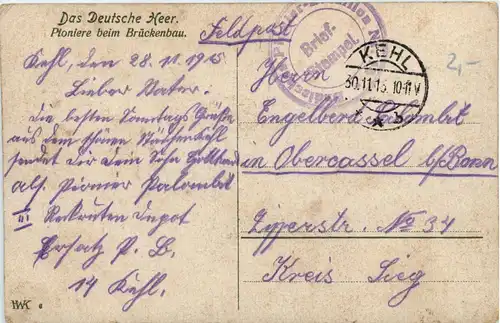 Das Deutsche Heer.
Pioniere beim Brückenbau.
Feldpost
Kehl, den 28.11.1915
Lieber Vater.
Die besten Sonntags Grüße
aus dem schönen Städtchen Kehl
sendet Dir Dein Sohn
als Pionier Palombit
III Rekruten Depot
Ersatz P. B.
14 Kehl.
Brief-
Stempel.
KEHL
30.11.15. 10-11V
2,-
Herrn
Engelbert Palombit
in Obercassel b/Bonn
No 34
Kreis Sieg
HWK 6